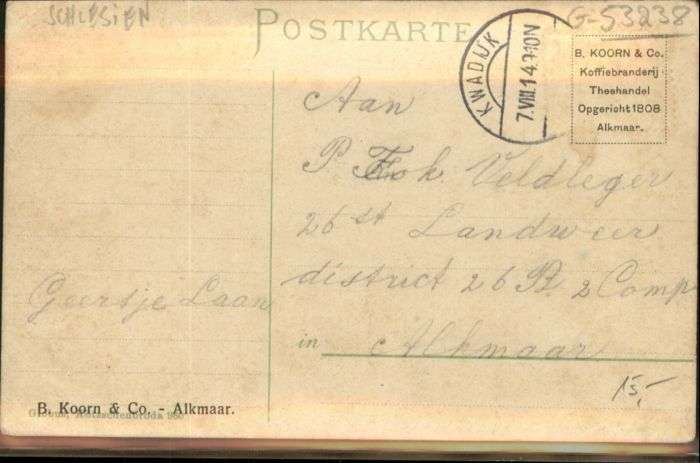 SCHLESIEN
POSTKARTE
G-53238
KWADIJK
7.VIII.14.
B. KOORN & Co.
Koffiebranderij
Theehandel
Opgericht 1808
Alkmaar.
Aan
P Fok Veldleger
26st Landweer
district 26 2 Comp
in Alkmaar
Geertje Laan
15,-
B. Koorn & Co. - Alkmaar.